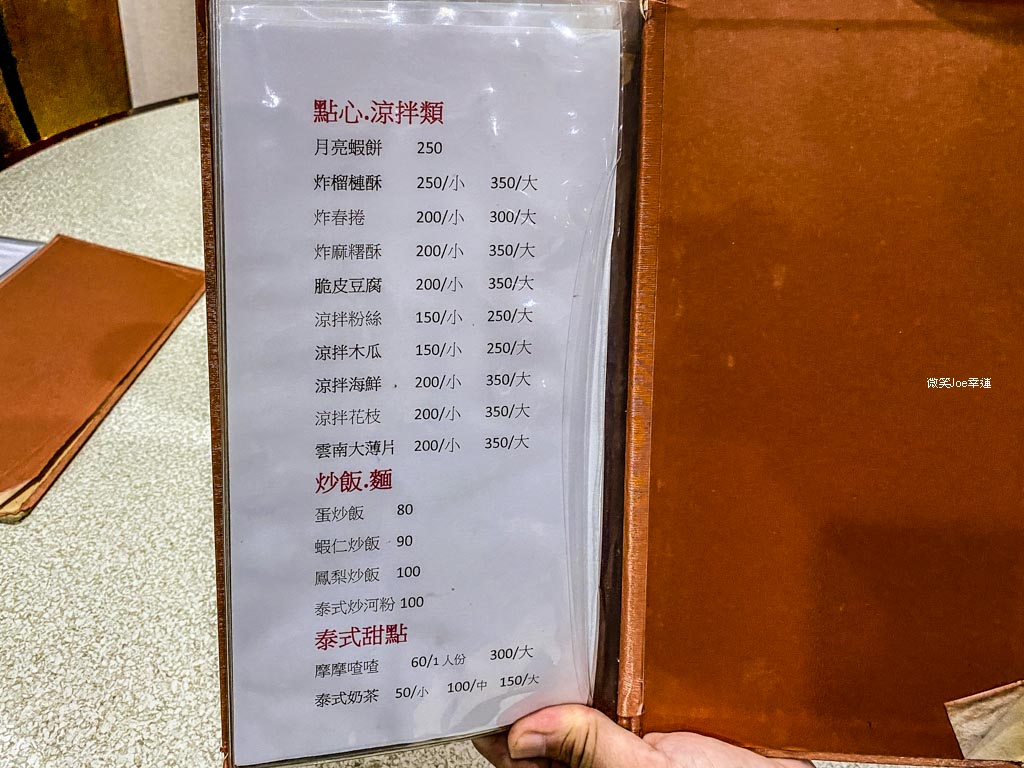 點心.涼拌類
月亮蝦餅 250
炸榴槤酥 250/小 350/大
炸春捲 200/小 300/大
炸麻糬酥 200/小 350/大
脆皮豆腐 200/小 350/大
涼拌粉絲 150/小 250/大
涼拌木瓜 150/小 250/大
涼拌海鮮 200/小 350/大
涼拌花枝 200/小 350/大
雲南大薄片 200/小 350/大
炒飯.麵
蛋炒飯 80
蝦仁炒飯 90
鳳梨炒飯 100
泰式炒河粉 100
泰式甜點
摩摩喳喳 60/1人份 300/大
泰式奶茶 50/小 100/中 150/大
微笑Joe幸運